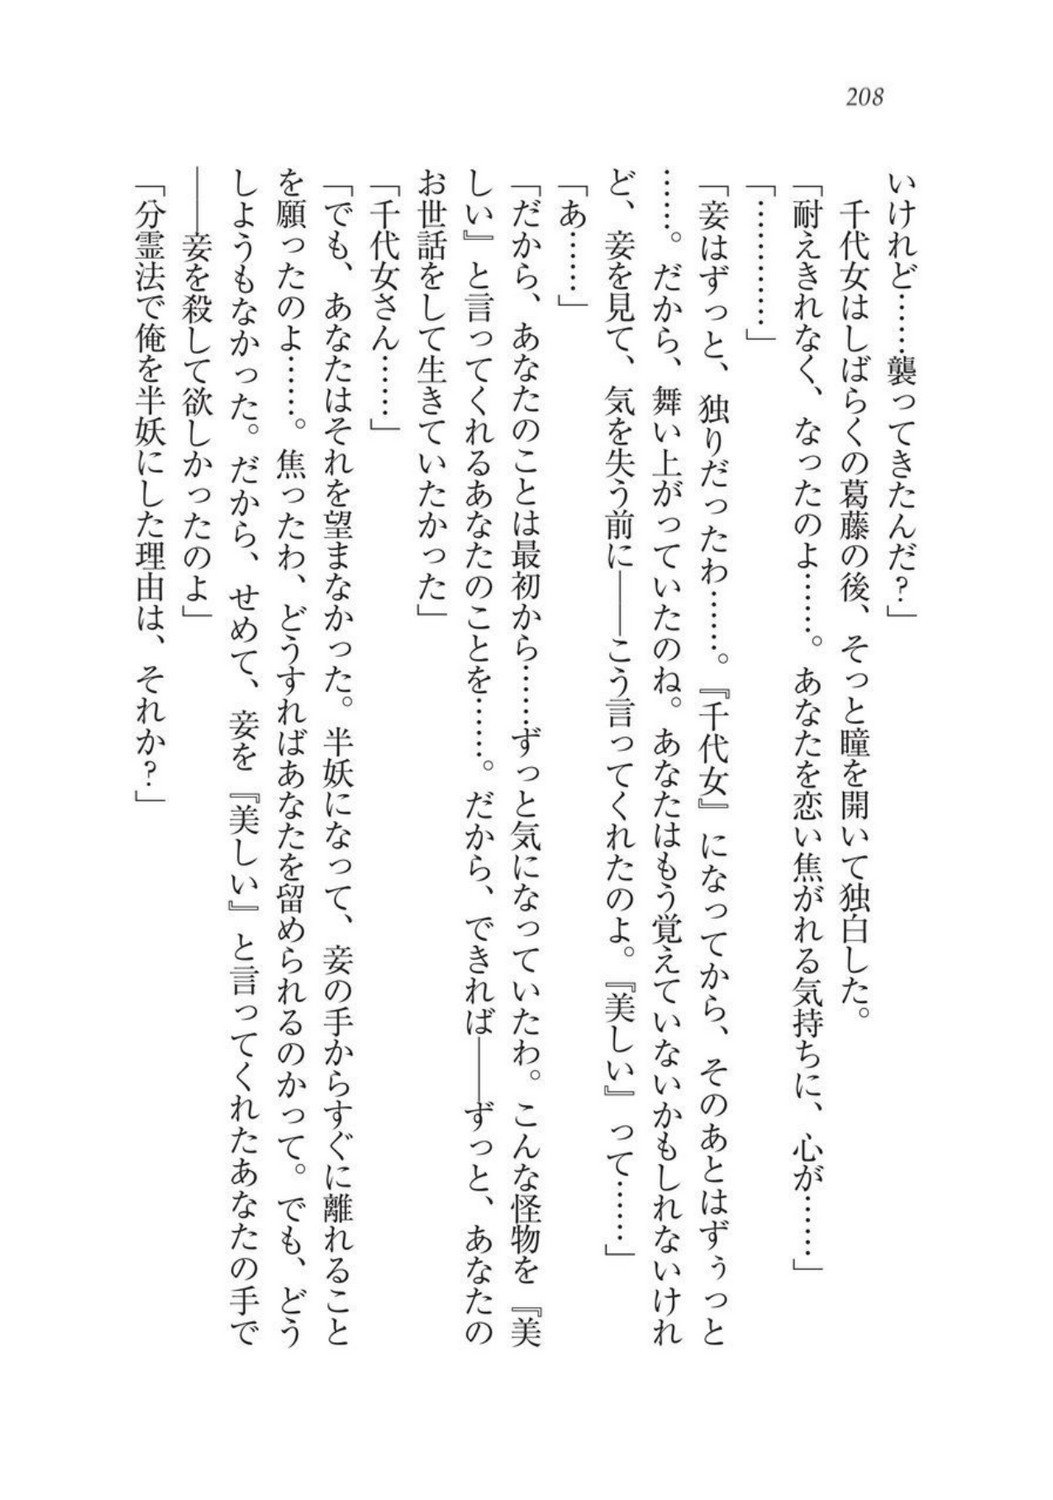 208
いけれど……襲ってきたんだ？」
　千代女はしばらくの葛藤の後、そっと瞳を開いて独白した。
「耐えきれなく、なったのよ……。あなたを恋い焦がれる気持ちに、心が……」
「…………」
「妾はずっと、独りだったわ……。『千代女』になってから、そのあとはずぅっと
……。だから、舞い上がっていたのね。あなたはもう覚えていないかもしれないけれ
ど、妾を見て、気を失う前に――こう言ってくれたのよ。『美しい』って……」
「あ……」
「だから、あなたのことは最初から……ずっと気になっていたわ。こんな怪物を『美
しい』と言ってくれるあなたのことを……。だから、できれば――ずっと、あなたの
お世話をして生きていたかった」
「千代女さん……」
「でも、あなたはそれを望まなかった。半妖になって、妾の手からすぐに離れること
を願ったのよ……。焦ったわ、どうすればあなたを留められるのかって。でも、どう
しようもなかった。だから、せめて、妾を『美しい』と言ってくれたあなたの手で
――妾を殺して欲しかったのよ」
「分霊法で俺を半妖にした理由は、それか？」